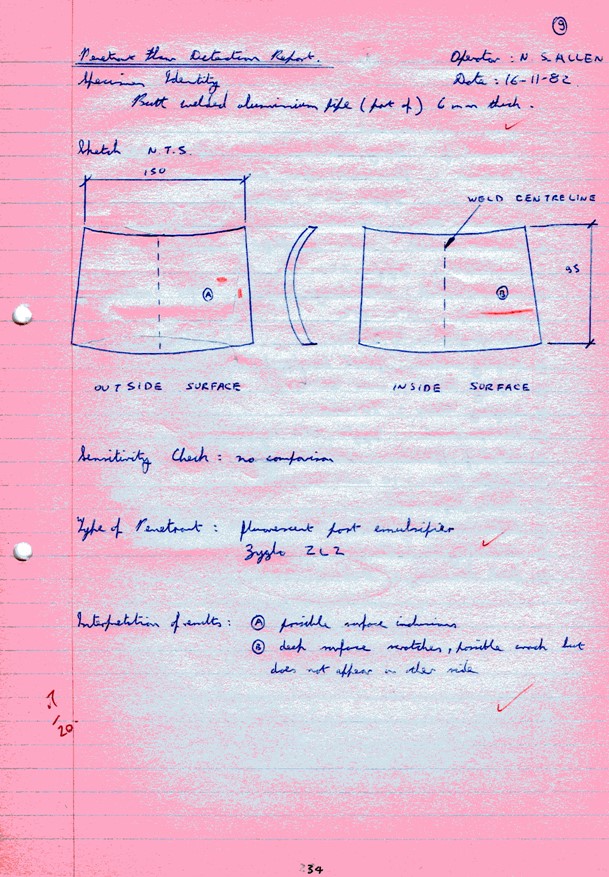 9
Penetrant Flaw Detection Report.
Operator : N S. ALLEN
Specimen Identity
Date : 16-11-82
Butt welded aluminium pipe (part of) 6 mm thick.
Sketch N.T.S.
150
WELD CENTRELINE
A
B
95
OUTSIDE SURFACE
INSIDE SURFACE
Sensitivity Check : no comparison
Type of Penetrant : fluorescent post emulsifier
Zyglo ZL2
Interpretation of results : A possible surface inclusions
B deep surface scratches, possible crack but
does not appear on other side
/20
34